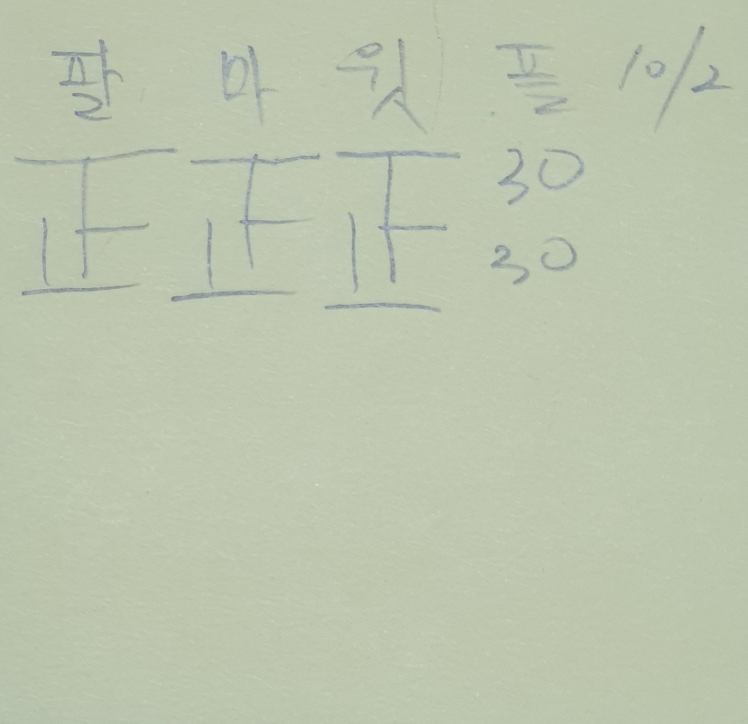 팔 마 윗 플 10/2
正 正 正 30
30